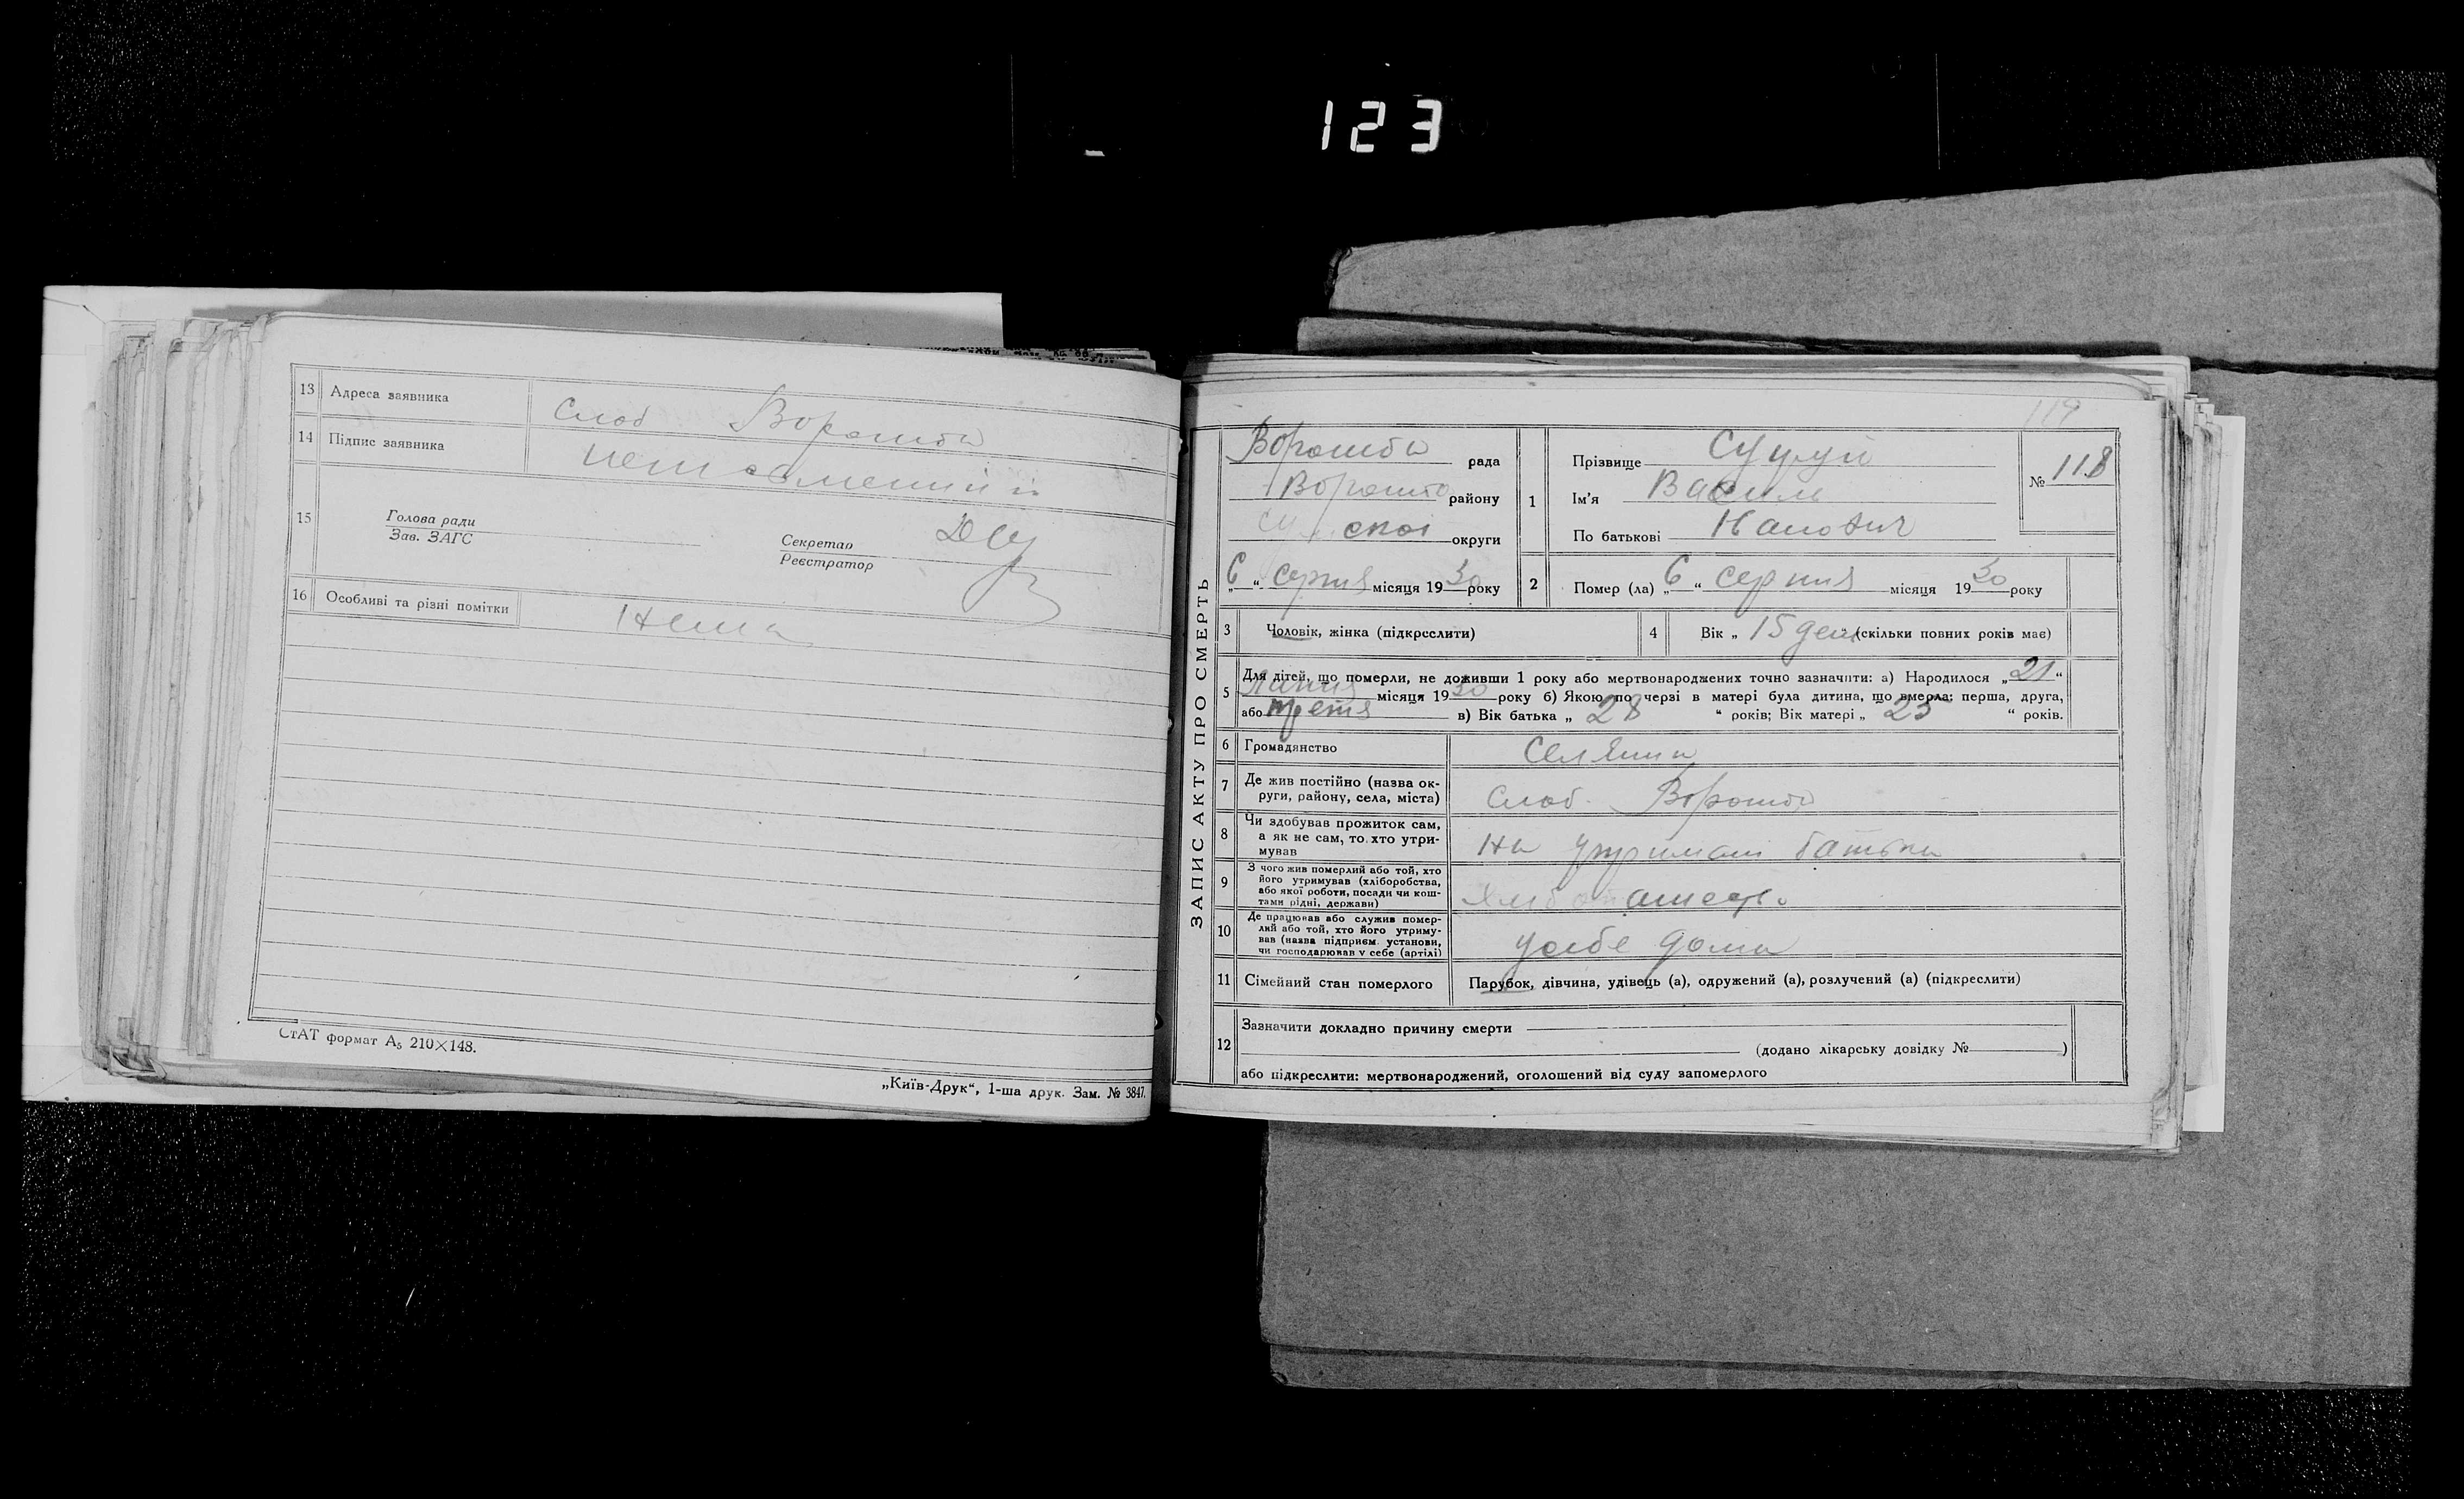 123
13 Адреса заявника Слоб Ворожба
14 Підпис заявника неписьменний
15 Голова ради
Зав. ЗАГС
Секретар
Реєстратор
16 Особливі та різні помітки Нема
СтАТ формат А5 210×148.
„Київ-Друк“, 1-ша друк. Зам. № 3847.
119
ЗАПИС АКТУ ПРО СМЕРТЬ
Ворожба рада
Ворожба району
Сумскої округи
„6“ серпня місяця 1930 року
1 Прізвище
Ім'я Василь
По батькові Іванович
№ 118
2 Помер (ла) „6“ серпня місяця 1930 року
3 Чоловік, жінка (підкреслити)
4 Вік „15 ден“ (скільки повних років має)
5 Для дітей, що померли, не доживши 1 року або мертвонароджених точно зазначити: а) Народилося „21“
липня місяця 1930 року б) Якою по черзі в матері була дитина, що вмерла: перша, друга,
або третя в) Вік батька „28“ років; Вік матері „25“ років.
6 Громадянство Селянин
7 Де жив постійно (назва округи, району, села, міста) Слоб. Ворожба
8 Чи здобував прожиток сам,
а як не сам, то хто утримував
На утримані батька
9 З чого жив померлий або той, хто
його утримував (хліборобства,
або якої роботи, посади чи коштами рідні, держави)
10 Де працював або служив померлий або той, хто його утримував (назва підприєм. установи,
чи господарював у себе (артілі)
у себе дома
11 Сімейний стан померлого Парубок, дівчина, удівець (а), одружений (а), розлучений (а) (підкреслити)
12 Зазначити докладно причину смерти
(додано лікарську довідку № )
або підкреслити: мертвонароджений, оголошений від суду запомерлого